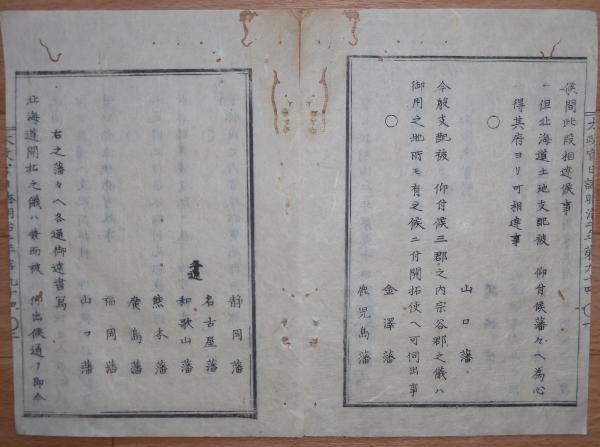 太政官日誌明治二年第九十四
候間此段相達候事
但北海道土地支配被 仰付候藩々ヘ為心
得其府ヨリ可相達事
○
山口藩
今般支配被 仰付候三郡之内宗谷郡之儀ハ
御用之地所モ有之候ニ付開拓使ヘ可伺出事
○
金澤藩
鹿児島藩
静岡藩
名古屋藩
和歌山藩
熊本藩
廣島藩
福岡藩
山口藩
右之藩々ヘ各通御達書寫
北海道開拓之儀ハ兼而被 仰出候通ノ即今